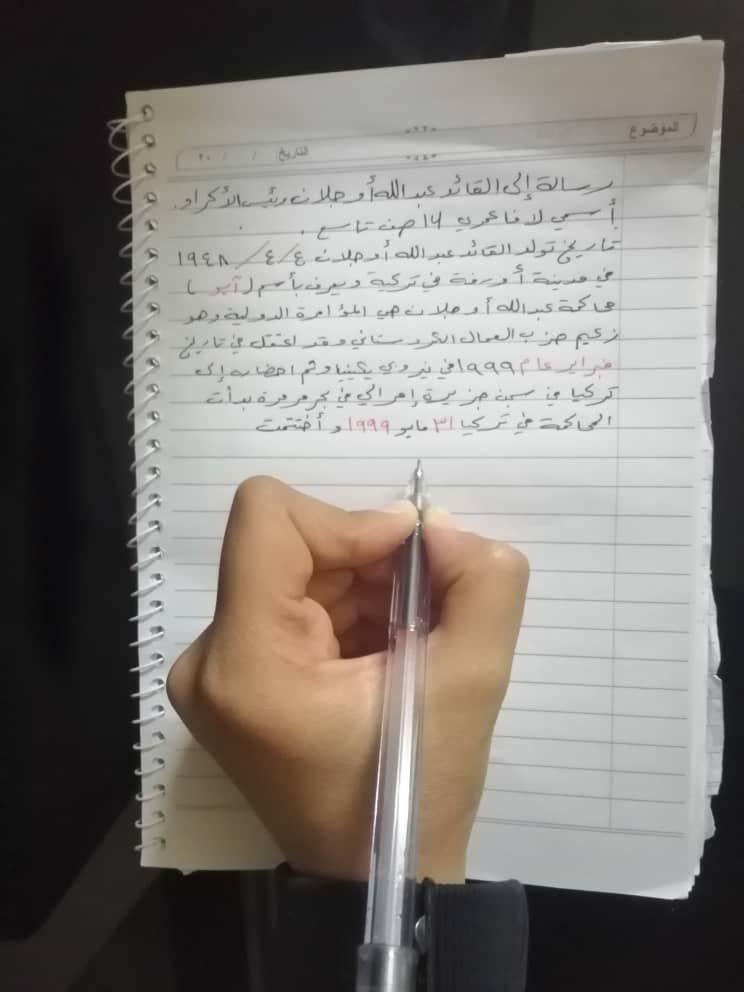 الموضوع
التاريخ / / ٢٠
رسالة إلى القائد عبد الله أوجلان رئيس الأكراد.
أسمي لافا عمري ١٤ صف تاسع.
تاريخ تولد القائد عبد الله أوجلان ٤/٤/١٩٤٨
في مدينة أورفة في تركية ويعرف بأسم (آبو)
محاكمة عبد الله أوجلان هي المؤامرة الدولية وهو
زعيم حزب العمال الكردستاني وقد اعتقل في تاريخ
فبراير عام ١٩٩٩ في نيروبي بكينيا وتم احضاره إلى
تركيا في سجن جزيرة إمرالي في بحر مرمرة بدأت
المحاكمة في تركيا ٣١ مايو ١٩٩٩ و أختتمت